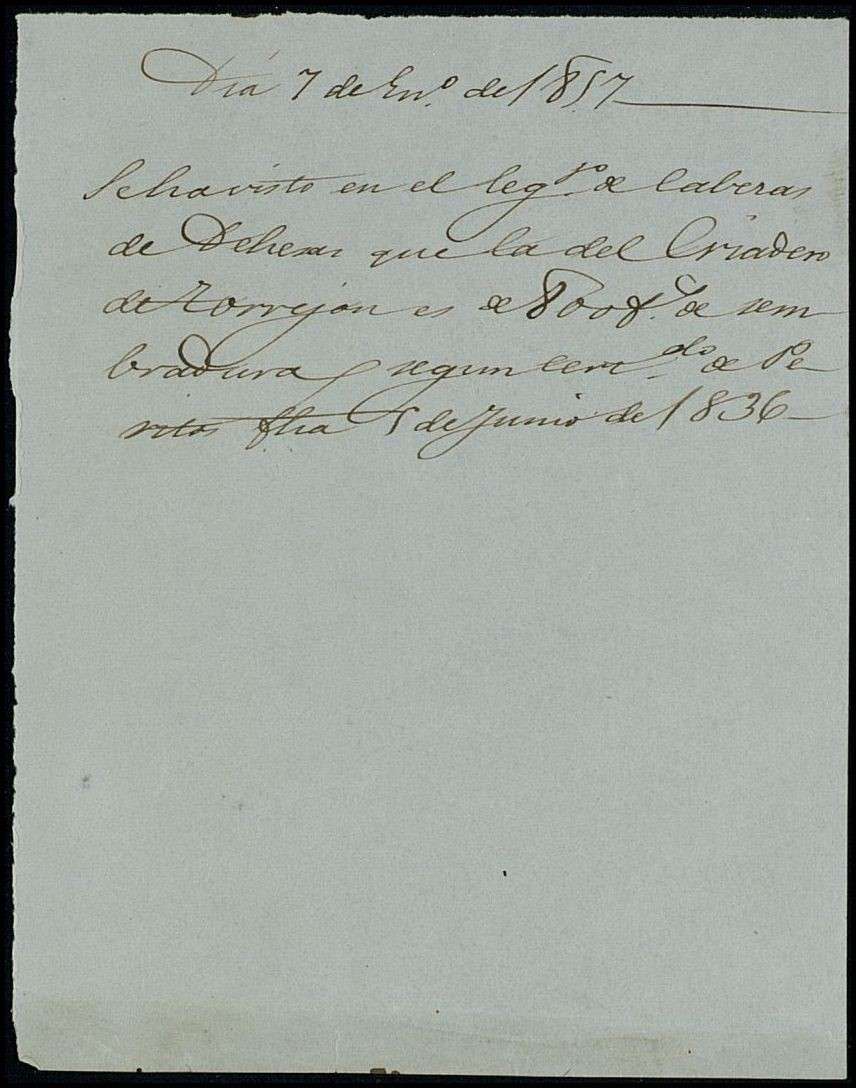 Dia 7 de En.º de 1857
Se ha visto en el leg.º de Caberas
de Dehesas que la del Criadero
de Torrejon es de 800 f.s de sem
bradura segun cert.do de Pe-
ritos fha 5 de Junio de 1836